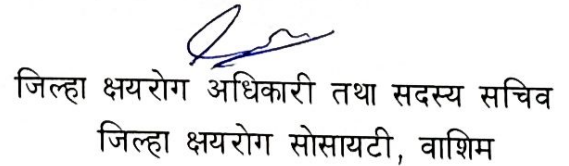 जिल्हा क्षयरोग अधिकारी तथा सदस्य सचिव
जिल्हा क्षयरोग सोसायटी, वाशिम